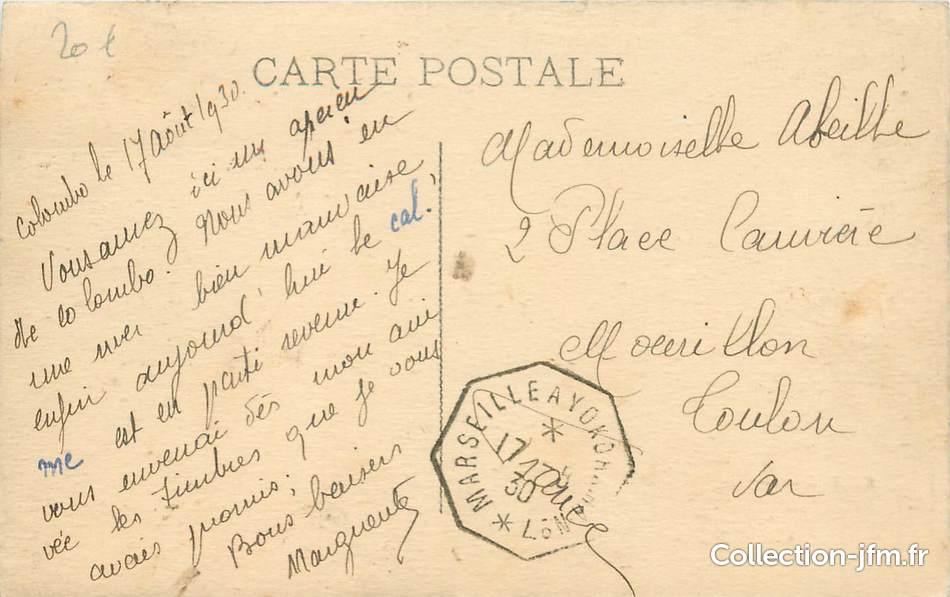 20 €
CARTE POSTALE
Colombo le 17 Août 1930.
Vous avez ici un aperçu
de Colombo. Nous avons eu
une mer bien mauvaise,
enfin aujourd'hui le cal.
me est en parti revenu. Je
vous enverrai dès mon ari
vée les timbres que je vous
avais promis;
Bons baisers
Marguerite
Mademoiselle Abeille
2 Place Cauvière
Mourillon
Toulon
Var
MARSEILLE A YOKOHAMA
17 AOUT
30
L.5N
France
Collection-jfm.fr